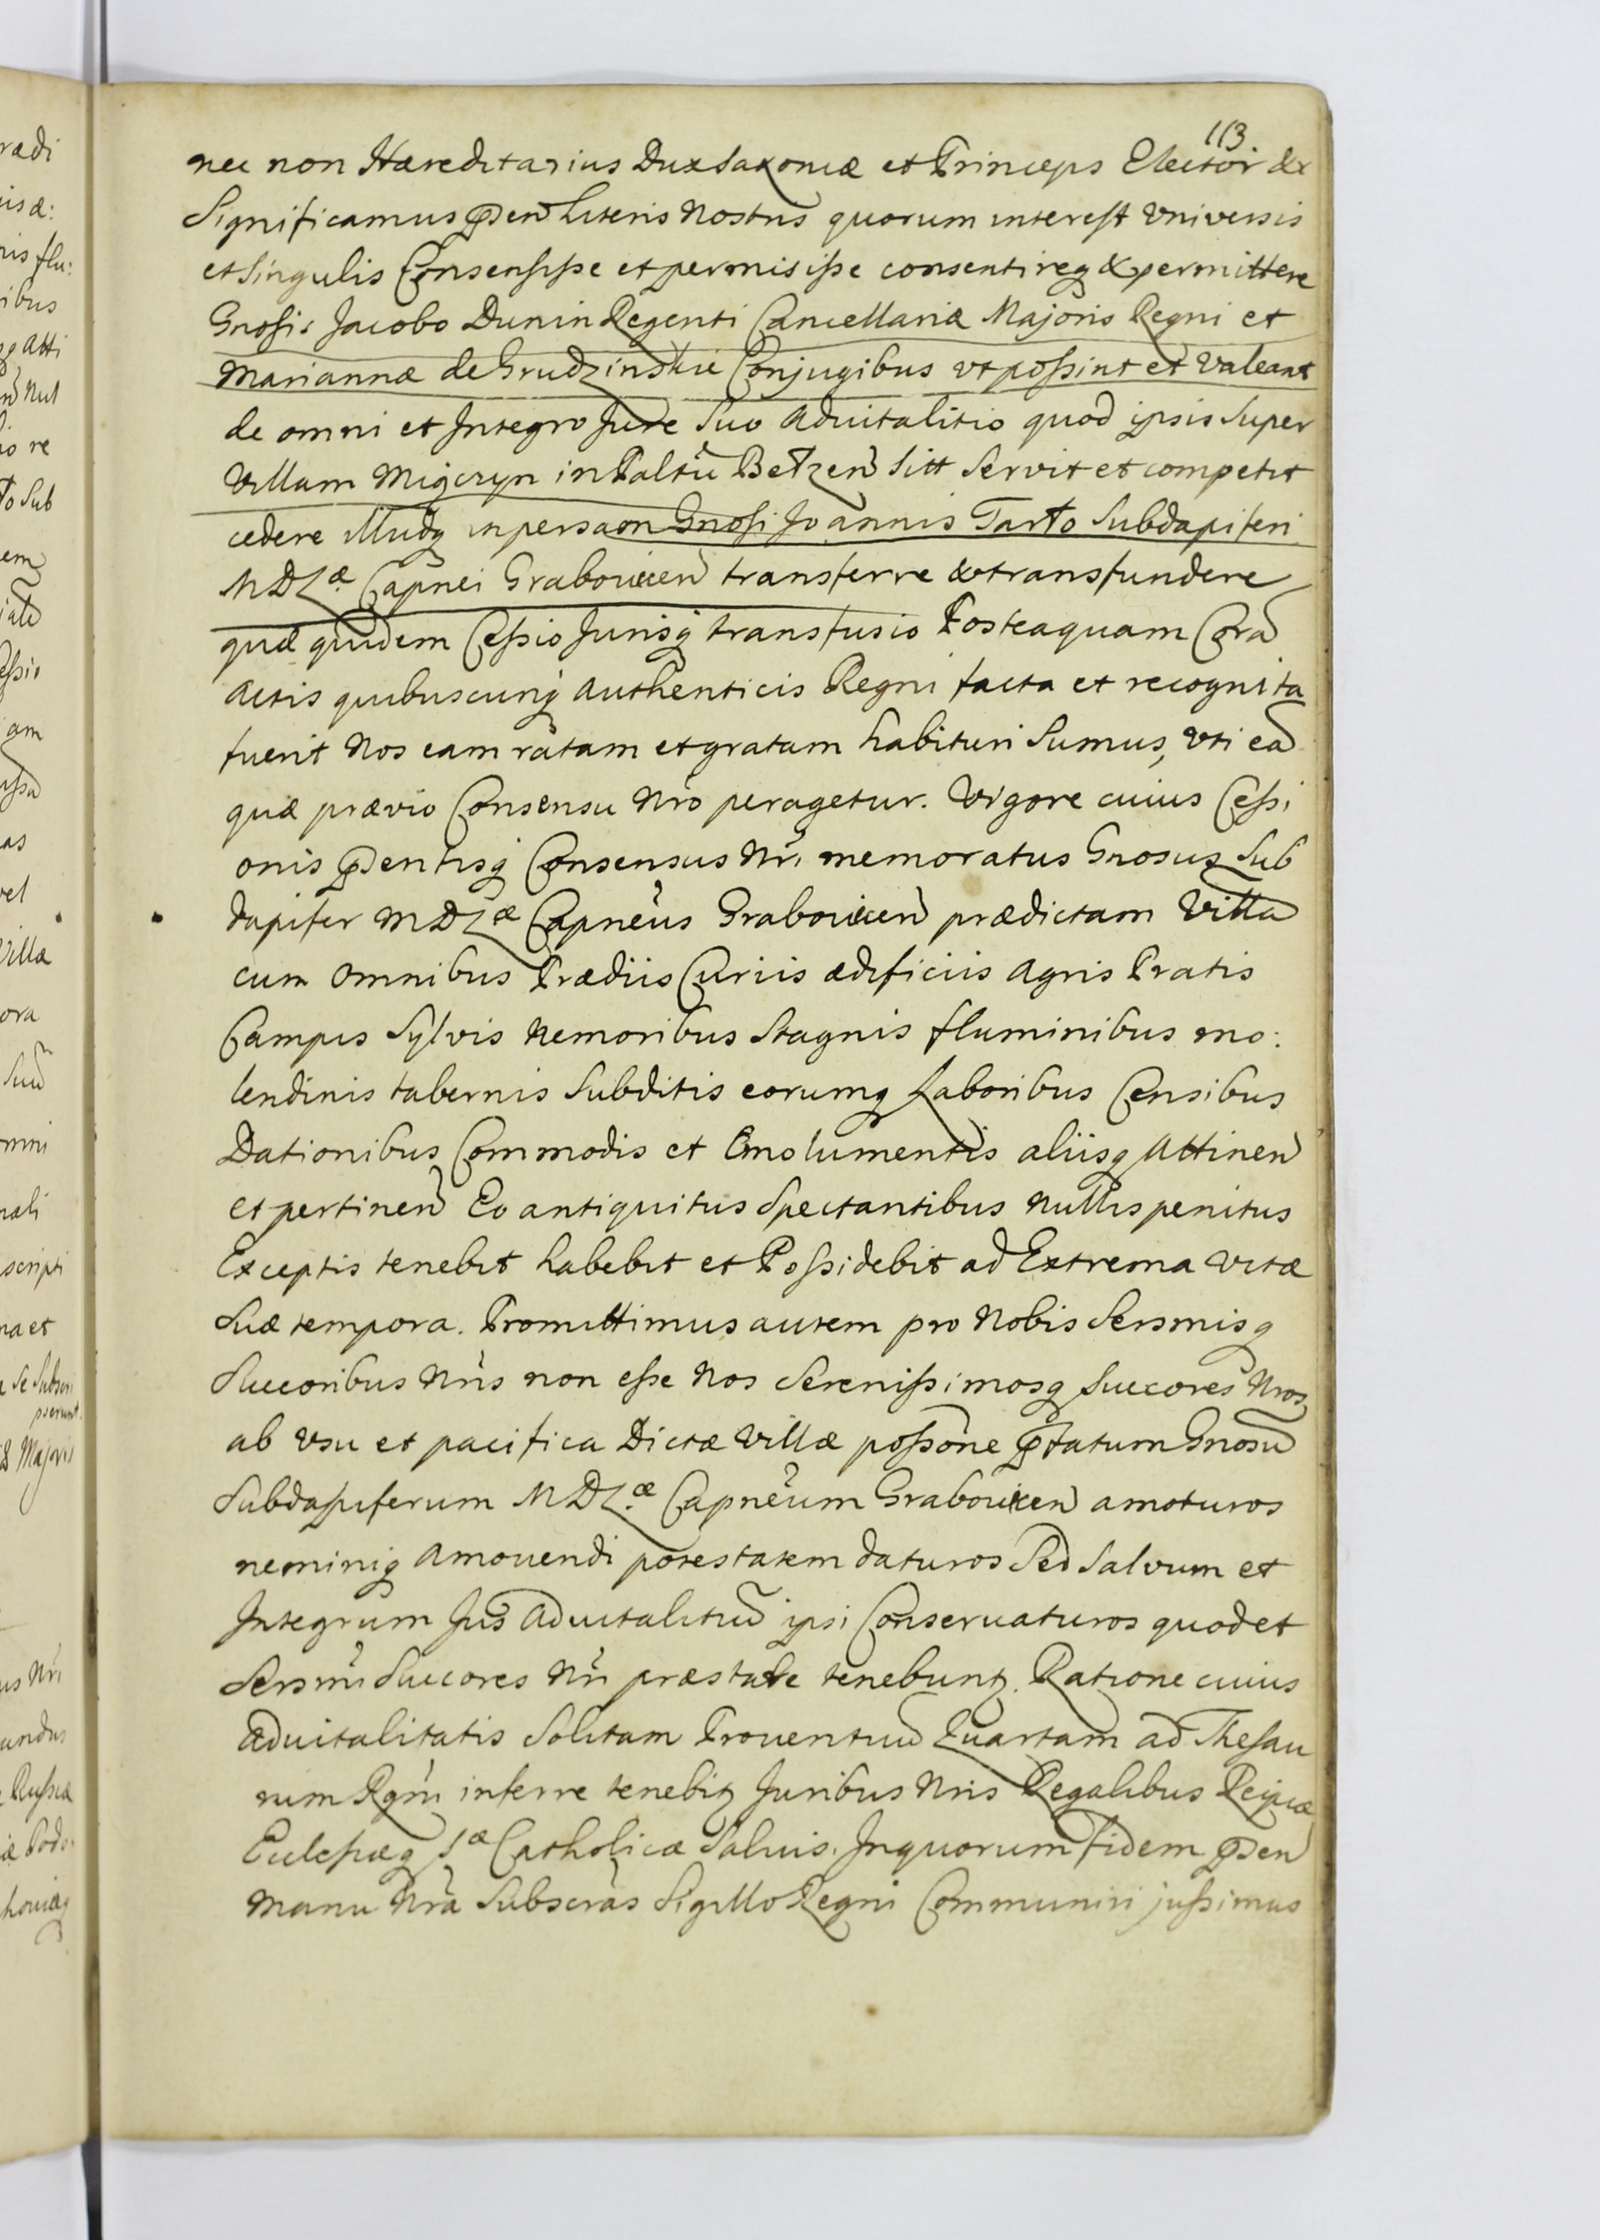 113
nec non Hæreditarius Dux Saxoniæ et Princeps Elector &
Significamus pñden Literis Nostris quorum interest Vniversis
et Singulis Consensisse et permisisse consentireq & permittere
Gnosis Jacobo Dunin Regenti Cancellariæ Majoris Regni et
Mariannæ de Grudzinskie Conjugibus vt possint et Valeant
de omni et Integro Jure Suo Advitalitio quod ipsis Super
Villam Migczyn in Paltũ Betzen Sitt Servit et competit
cedere Illudq in persaon Gnosi Joannis Tarło Subdapiferi
MDLæ Capnei Grabowiecen transferre & transfundere
quæ quidem Cessio Jurisq transfusio Posteaquam Cora
Actis quibuscunq Authenticis Regni facta et recognita
fuerit Nos eam ratam et gratam habituri Sumus, Vti ea
quæ prævio Consensu Nro peragetur. Vigore cuius Cessi
onis pñdentisq Consensus Nri memoratus Gnosus Sub
dapifer MDLæ Capneus Grabowiecen prædictam Villa
cum Omnibus Prædiis Curiis ædificiis Agris Pratis
Campis Sylvis Nemoribus Stagnis fluminibus mo:
lendinis tabernis Subditis eorumq Laboribus Censibus
Dationibus Commodis et Emolumentis aliisq Attinen
et pertinen Eo antiquitus Spectantibus Nullis penitus
Exceptis tenebit habebit et Possidebit ad Extrema Vitæ
Suæ tempora. Promittimus autem pro Nobis Sersmisq
Succoribus Nris non esse Nos Serenissimosq Succores Nros
ab Vsu et pacifica Dictæ Villæ possone pñfatum Gnosũ
Subdapiferum MDLæ Capneum Grabowiecen amoturos
neminiq Amovendi potestatem daturos Sed Salvum et
Integrum Jus Advitalitiũ ipsi Conservaturos quod et
Sersmi Succores Nri præstare tenebunt. Ratione cuius
Advitalitatis Solitam Proventuũ Quartam ad Thesau
rum Rgni inferre tenebit Juribus Nris Regalibus Reipcæ
Eclesiæq Sæ Catholicæ Salvis. In quorum fidem pñden
Manu Nra Subscras Sigillo Regni Communiri jussimus